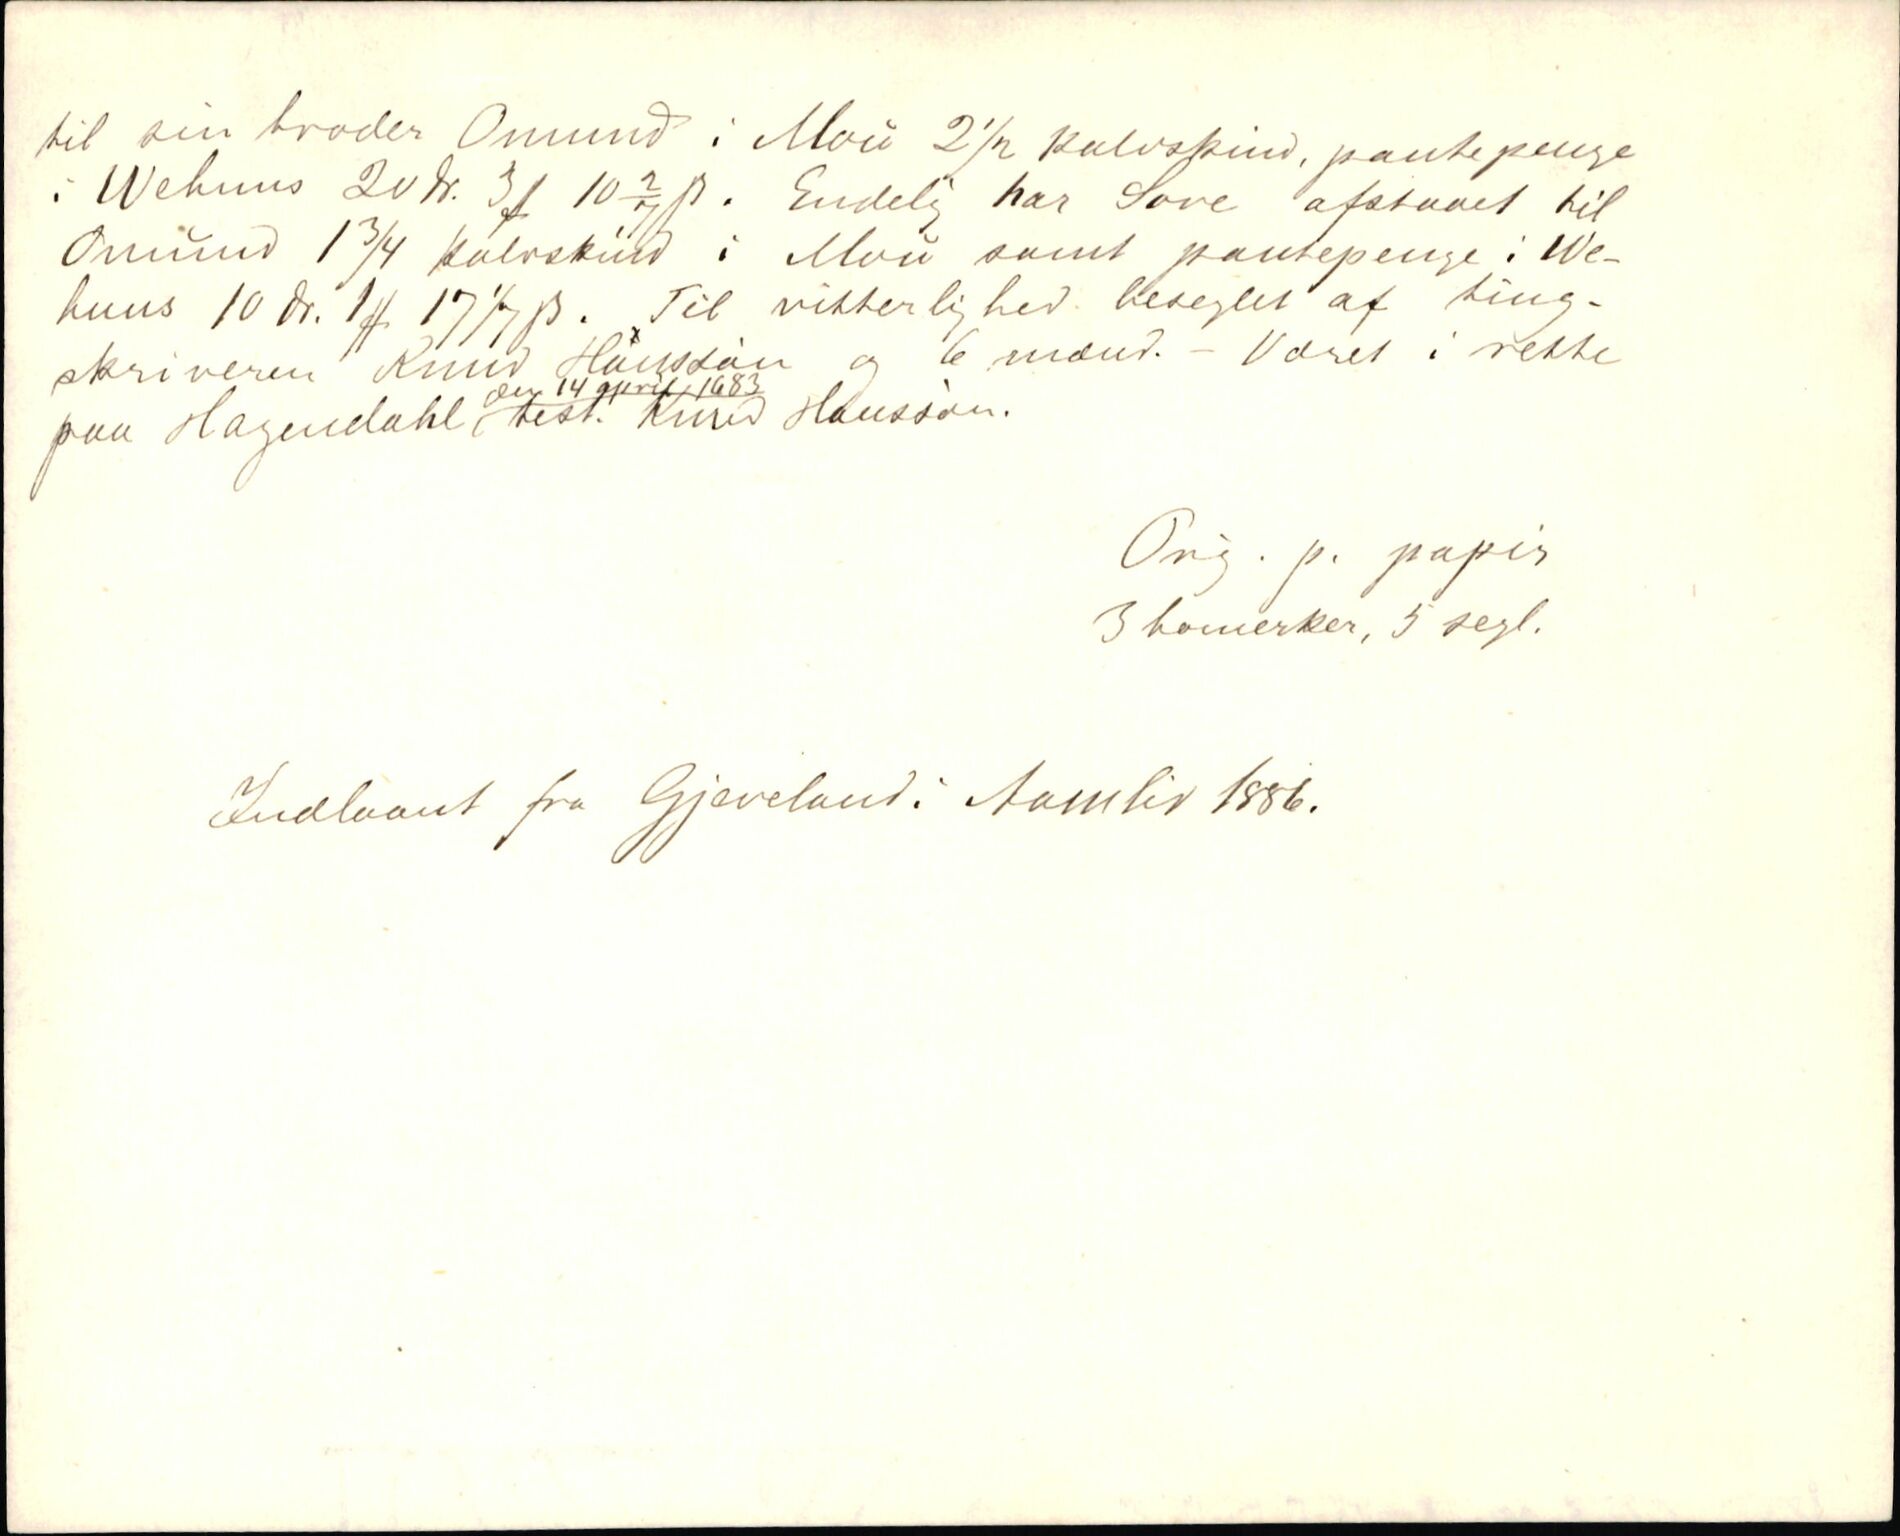 til sin broder Omund i Moü 2 1/2 kalvskind, pantepenge
i Wehuus 20 dr. 3 ƒ 10 2/7 β. Endelig har Sove afstaaet til
Omünd 1 3/4 kalvskind i Moü samt pantepenge i We-
huus 10 dr. 1 ƒ 17 1/7 β. Til vitterlighed beseglet af ting-
skriveren Knud Hansson og 6 mænd. – Været i rette
den 14 april 1683
paa Hagendahl, test. Knud Hansson.
Orig. p. papir
3 bomerker, 5 segl.
Indlaant fra Gjeveland i Aamliv 1886.